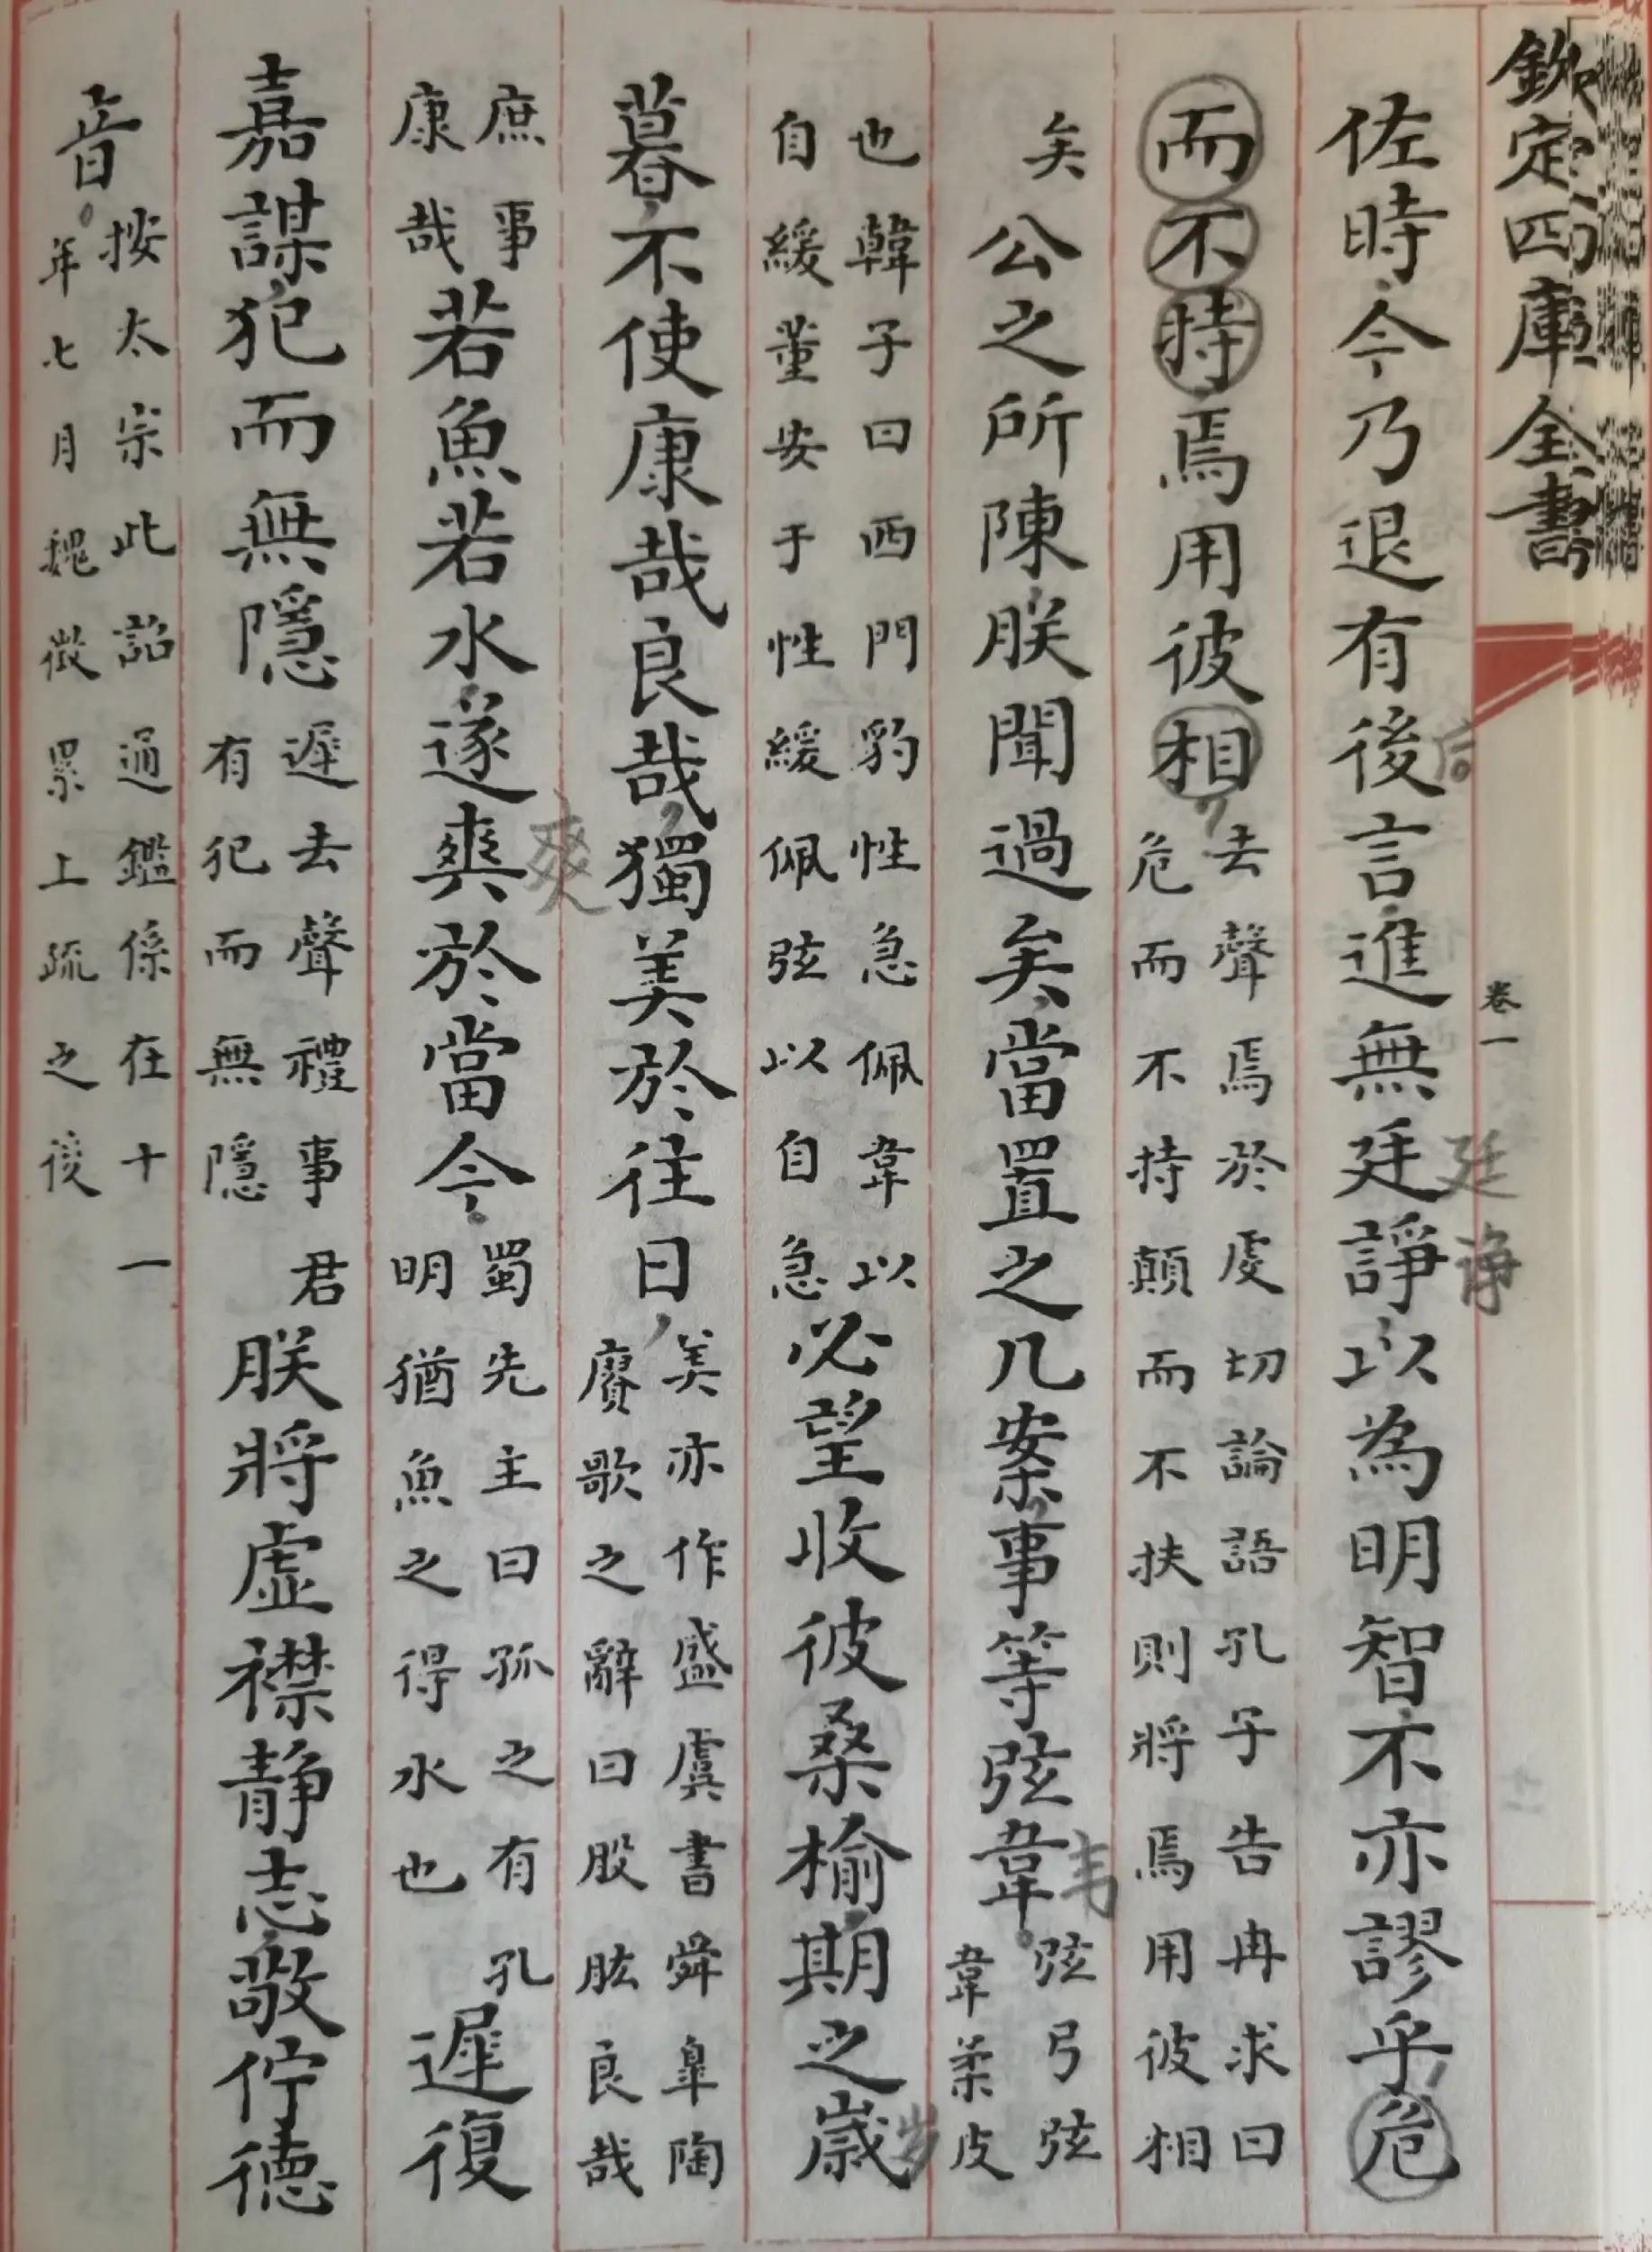 欽定四庫全書
卷一
佐時今乃退有後言進無廷諍以為明智不亦謬乎危
后
廷诤
而不持焉用彼相
去聲焉於虔切論語孔子告冉求曰
危而不持顛而不扶則將焉用彼相
矣
公之所陳朕聞過矣當置之几案事等弦韋
韦
弦弓弦
韋柔皮
也韓子曰西門豹性急佩韋以
自緩董安于性緩佩弦以自急
必望收彼桑榆期之歲
岁
暮不使康哉良哉獨美於往日
美亦作盛虞書舜皐陶
賡歌之辭曰股肱良哉
庶事
康哉
若魚若水遂爽於當今
爽
蜀先主曰孤之有孔
明猶魚之得水也
遲復
嘉謀犯而無隱
遲去聲禮事君
有犯而無隱
朕將虛襟静志敬佇德
音
按太宗此詔通鑑係在十一
年七月魏徵累上疏之後